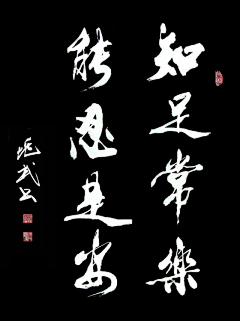 知足常樂
能忍是安